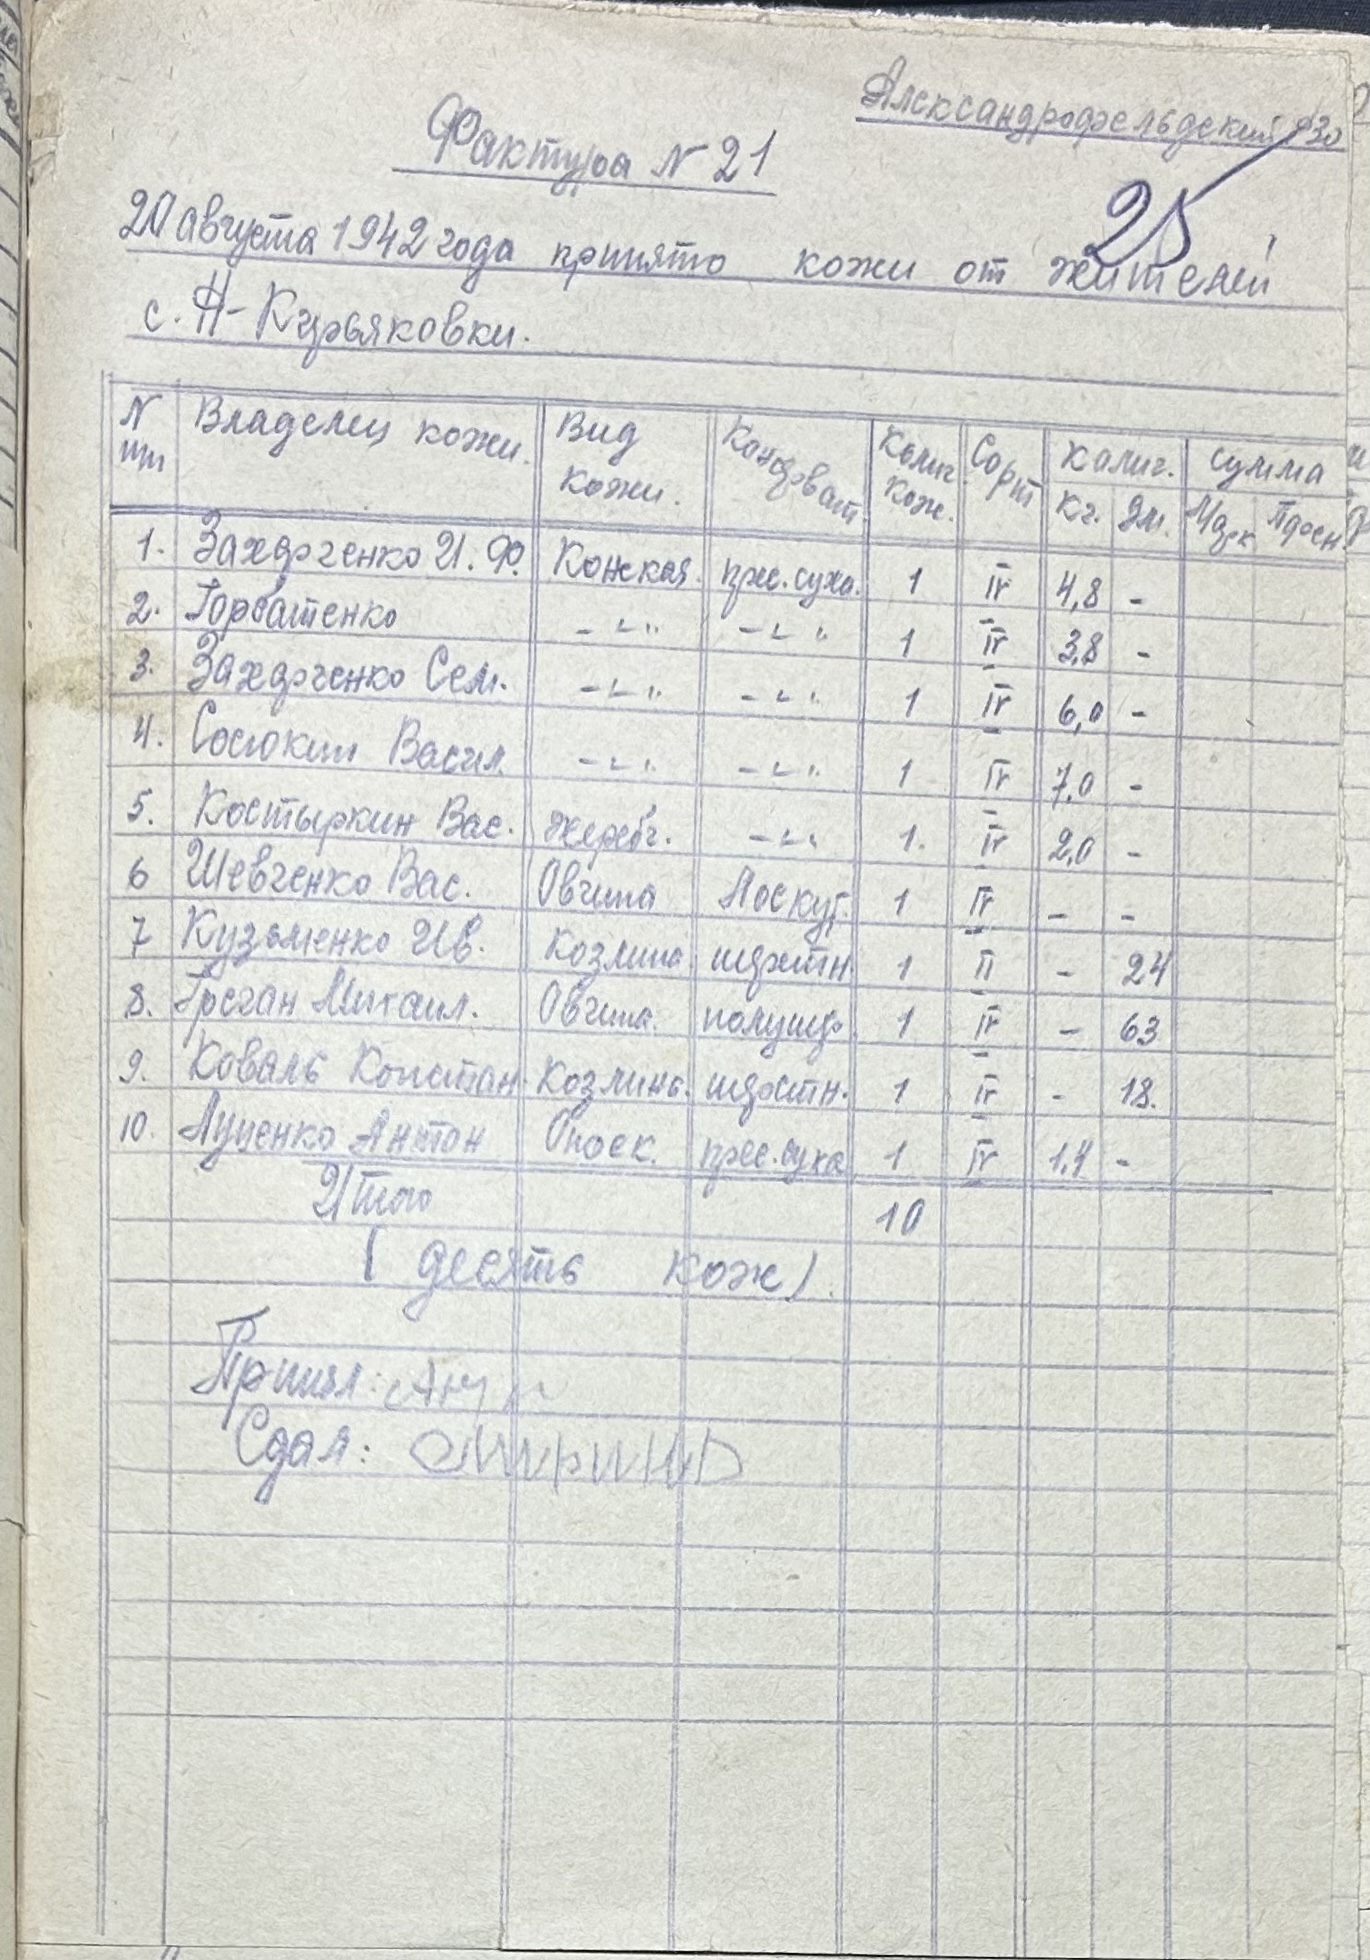 Александрофельдский р30
25
Фактура N 21
20 августа 1942 года принято кожи от жителей
с. Н-Курьяковки.
N пп Владелец кожи. Вид кожи. Консроват. Колич. кож. Сорт колич. кг. дм. сумма
1. Захарченко И. Ф. Конская. прес. суха. 1 IV 4,8 -
2. Горбатенко -"- -"- 1 IV 3,8 -
3. Захарченко Сем. -"- -"- 1 IV 6,0 -
4. Сосюкин Васил. -"- -"- 1 IV 7,0 -
5. Костыркин Вас. жеребч. -"- 1. IV 2,0 -
6 Шевченко Вас. Овчина Лоскут. 1 IV - -
7 Кузьменко Ив. Козлина шерстн. 1 II - 24
8. Греган Михаил. Овчина. полушер. 1 IV - 63
9. Коваль Констан. Козлина. шерстн. 1 IV - 18.
10. Луценко Антон Опоек. прес. суха 1 IV 1,4 -
Итого 10
( десять кож ).
Принял:
Сдал: